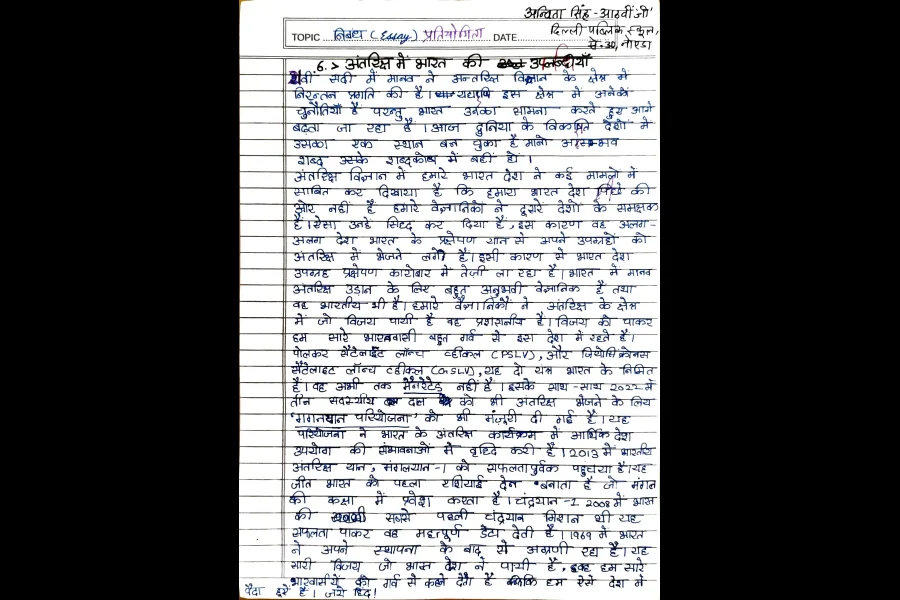 अन्विता सिंह - आठवीं 'जी'
दिल्ली पब्लिक स्कूल,
से-30, नोएडा
TOPIC निबंध (Essay) प्रतियोगिता DATE
6.> अंतरिक्ष में भारत की उपलब्धियाँ
21वीं सदी में मानव ने अन्तरिक्ष विज्ञान के क्षेत्र में
निरन्तन प्रगति की है। यद्यपि इस क्षेत्र में अनेकों
चुनौतियाँ हैं परन्तु भारत उनका सामना करते हुए आगे
बढ़ता जा रहा है। आज दुनिया के विकसित देशों में
उसका एक स्थान बन चुका है मानो असम्भव
शब्द उसके शब्दकोष में नहीं हो।
अंतरिक्ष विज्ञान में हमारे भारत देश ने कई मामलो में
साबित कर दिखाया है कि हमारा भारत देश पिछे की
ओर नहीं है हमारे वैज्ञानिकों ने दूसरे देशों के समक्षक
हैं। ऐसा उन्हें सिद्द कर दिया है, इस कारण वह अलग-
अलग देश भारत के प्रक्षेपण यान से अपने उपग्रहों को
अंतरिक्ष में भेजने लगे हैं। इसी कारण से भारत देश
उपग्रह प्रक्षेपण कारोबार में तेज़ी ला रहा है। भारत में मानव
अंतरिक्ष उड़ान के लिए बहुत अनुभवी वैज्ञानिक है तथा
वह भारतीय भी है। हमारे वैज्ञानिकों ने अंतरिक्ष के क्षेत्र
में जो विजय पायी है वह प्रशसनीय है। विजय को पाकर
हम सारे भारतवासी बहुत गर्व से इस देश में रहते हैं।
पोलकर सैटेनाइट लॉन्च व्हीकल (PSLV), और जियोसिंक्रोनस
सैटेलाइट लॉन्च व्हीकल (GSLV), यह दो यंत्र भारत के निर्मित
हैं। वह अभी तक मैनरेटेड नहीं है। इसके साथ-साथ 2022 में
तीन सदस्यीय दल को भी अंतरिक्ष भेजने के लिय
'गगनयान परियोजना' को भी मंज़ूरी दी गई है। यह
परियोजना ने भारत के अंतरिक्ष कार्यक्रम में आर्थिक देश
उपयोग की संभावनाओं में वृद्दि करी है। 2013 में भारतीय
अंतरिक्ष यान, मंगलयान-1 को सफलतापुर्वक पहुचया है। यह
जीत भारत को पहला एशियाई देन बनाता है जो मंगल
की कक्षा में प्रवेश करता है। चंद्रयान-1 2008 में भारत
की सबसे पहली चंद्रयान मिशन थी यह
सफलता पाकर वह महत्पूर्ण डेटा देती है। 1969 में भारत
ने अपने स्थापना के बाद से अग्रणी रहा है। यह
सारी विजय जो भारत देश ने पायी है, हम सारे
भारवासीयों को गर्व से कहने देती है क्योंकि हम ऐसे देश में
पैदा हुए हैं। जय हिंद!